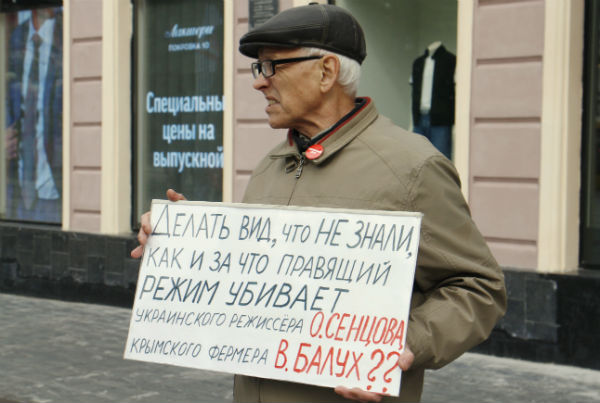 Лакшери
ПОКРОВКА 10
Специальны
цены на
выпускной
ДЕЛАТЬ ВИД, что НЕ ЗНАЛИ,
КАК И ЗА ЧТО ПРАВЯЩИЙ
РЕЖИМ УБИВАЕТ
УКРАИНСКОГО РЕЖИССЁРА О.СЕНЦОВА,
КРЫМСКОГО ФЕРМЕРА В.БАЛУХ??